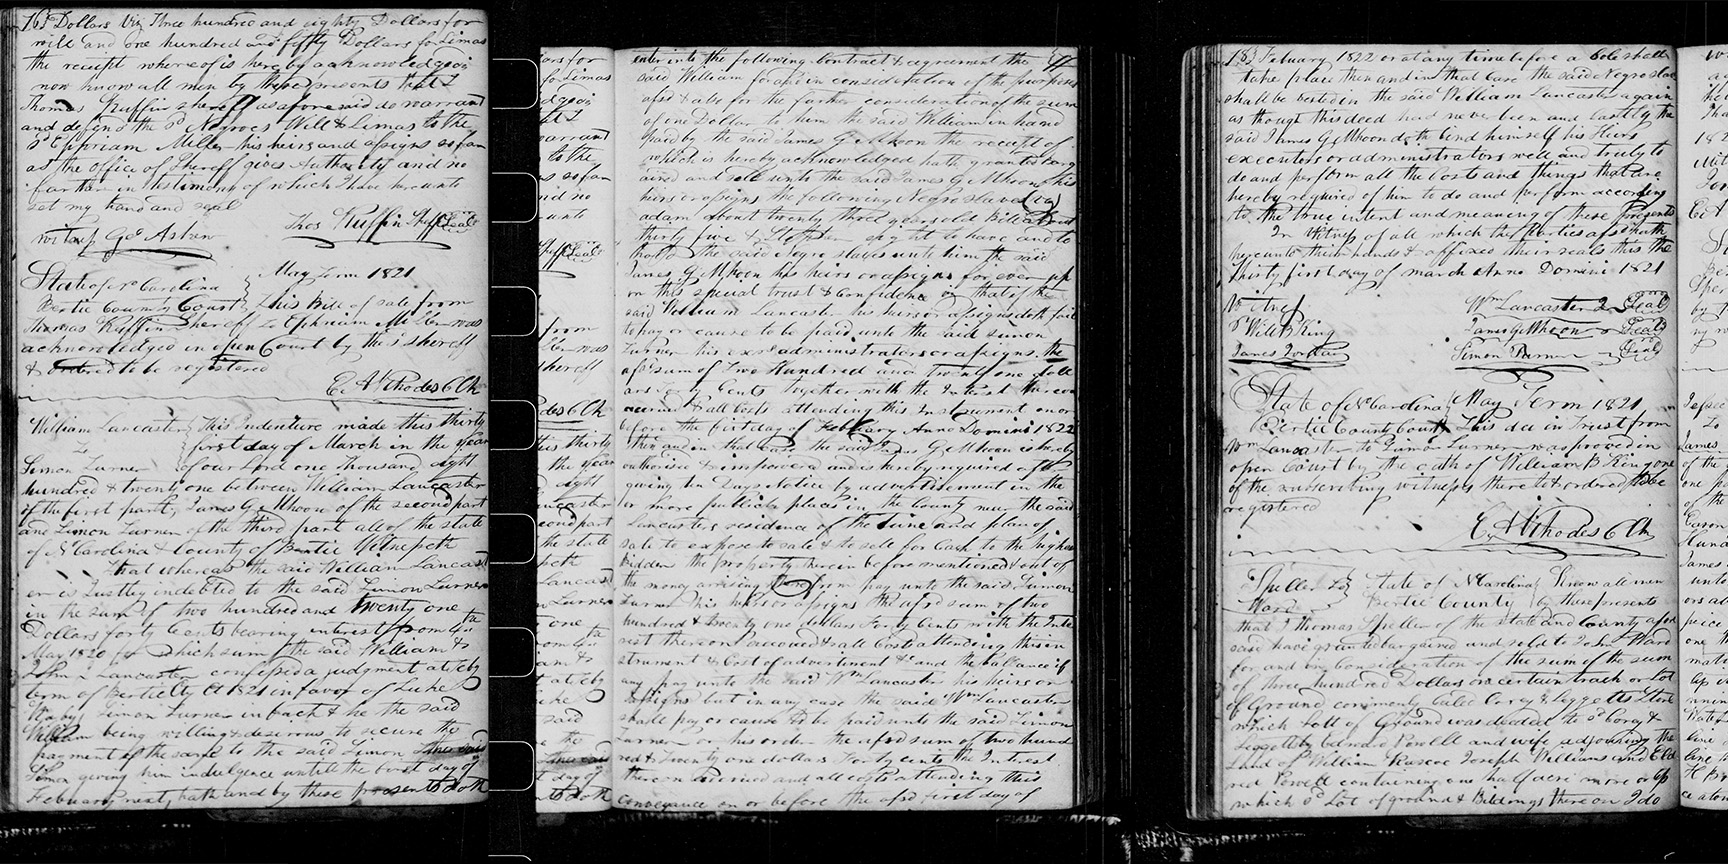 16 Dollars Viz Three hundred and eighty Dollars for
will and one hundred and fifty Dollars for Limas
the receipt whereof is hereby acknowledged
now know all men by these presents that I
Thomas Ruffin Shereff as aforesaid do warrant
and defend the sd Negroes Will & Limas to the
sd Ephriam Miller his heirs and assigns as far
as the office of Shereff gives Authority and no
farther in testimony of which I have hereunto
set my hand and seal
witness Geo Askew Thos Ruffin Shff Seal
State of No Carolina May Term 1821
Bertie County Court This Bill of sale from
Thomas Ruffin Shereff to Ephriam Miller was
acknowledged in open Court by the sd Shereff
& ordered to be registered
E A Rhodes C Clk
William Lancaster This Indenture made this thirty
To first day of March in the year
Simon Turner of our Lord one thousand eight
hundred & twenty one between William Lancaster
of the first part, James G Mhoon of the second part
and Simon Turner of the third part all of the state
of No Carolina & County of Bertie Witnesseth
That whereas the said William Lancast
er is Justley indebted to the said Simon Turner
in the sum of two hundred and twenty one
Dollars forty Cents bearing interest from 4th
May 1820 for which sum the said William &
John Lancaster confessed a judgment at
term of Bertie Cty Ct 1821 in favor of Luke
Raby Simon Turner in back & he the said
William being willing & desirous to secure the
payment of the same to the said Simon
Simon giving him indulgence untill the first day of
February next, hath and by these presents doth
enter into the following Contract & agreement the 17
said William for and in consideration of the purposes
afsd & also for the farther consideration of the sum
of one Dollar to him the said William in hand
paid by the said James G Mhoon the receipt of
which is hereby acknowledged hath granted barg
ained and sell unto the said James G Mhoon his
heirs or assigns the following Negro slaves (viz)
adam about twenty three years old Bill about
thirty five & Stephen eight to have and to
hold the said Negro slaves unto him the said
James G Mhoon his heirs or assigns for ever up
on this special trust & confidence that if the
said William Lancaster his heirs or assigns doth fail
to pay or cause to be paid unto the said Simon
Turner his exrs administrators or assigns the
afsd sum of Two Hundred and twenty one doll
ars forty Cents Together with the Interest thereon
accrued & all Costs attending this Instrument on or
before the first day of February Anno Domini 1822
then and in that case the said James G Mhoon is hereby
authorised & impowered and is hereby required after
giving ten Days Notice by advertisement in three
or more publick places in the County near the said
Lancasters residence of the time and place of
sale to expose to sale & to sell for Cash to the highest
bidder the property herein before mentioned & out of
the money arising therefrom pay unto the said Simon
Turner his heirs or assigns the afsd sum of two
hundred & twenty one dollars Forty Cents with the Inte
rest thereon accrued & all Costs attending this in
strument & Cost of advertisment & and the ballance if
any pay unto the said Wm Lancaster his heirs or
assigns but in any case the said Wm Lancaster
shall pay or cause to be paid unto the said Simon
Turner or his order the afsd sum of two hund
red & twenty one dollars Forty cents the Interest
thereon accrued and all costs attending this
conveyance on or before the afsd first day of
18 February 1822 or at any time before a sale shall
take place then and in that case the said Negro slaves
shall be vested in the said William Lancaster again
as though this deed had never been and lastly the
said James G Mhoon doth bind himself his Heirs
executors or administrators well and truly to
do and perform all the Costs and things that are
hereby required of him to do and perform according
to the true intent and meaning of these presents
In Witness of all which the Parties afsd hath
hereunto their hands & affixed their seals this the
thirty first day of march Anno Domini 1821
Witness Wm Lancaster Seal
Will B King James G Mhoon Seal
James Jordan Simon Turner Seal
State of No Carolina May Term 1821
Bertie County Court This deed in Trust from
Wm Lancaster to Simon Turner was proved in
open Court by the oath of William B King one
of the subscribing witness thereto & ordered to be
registered
E A Rhodes C Clk
Speller To State of No Carolina Know all men
Ward Bertie County by these presents
that I Thomas Speller of the state and County afore
said have granted bargained and sold to John Ward
for and in Consideration of the sum of the sum
of three hundred Dollars a certain track or Lot
of Ground commonly Caled Cory & Leggetts Store
which Lott of Ground was deeded to sd Cory &
Leggett by Edward Powell and wife adjoining the
Land of William Roscoe Joseph Williams and Ed
ward Powell containing one half acre more or less
which sd Lot of ground & Bildings there on I do